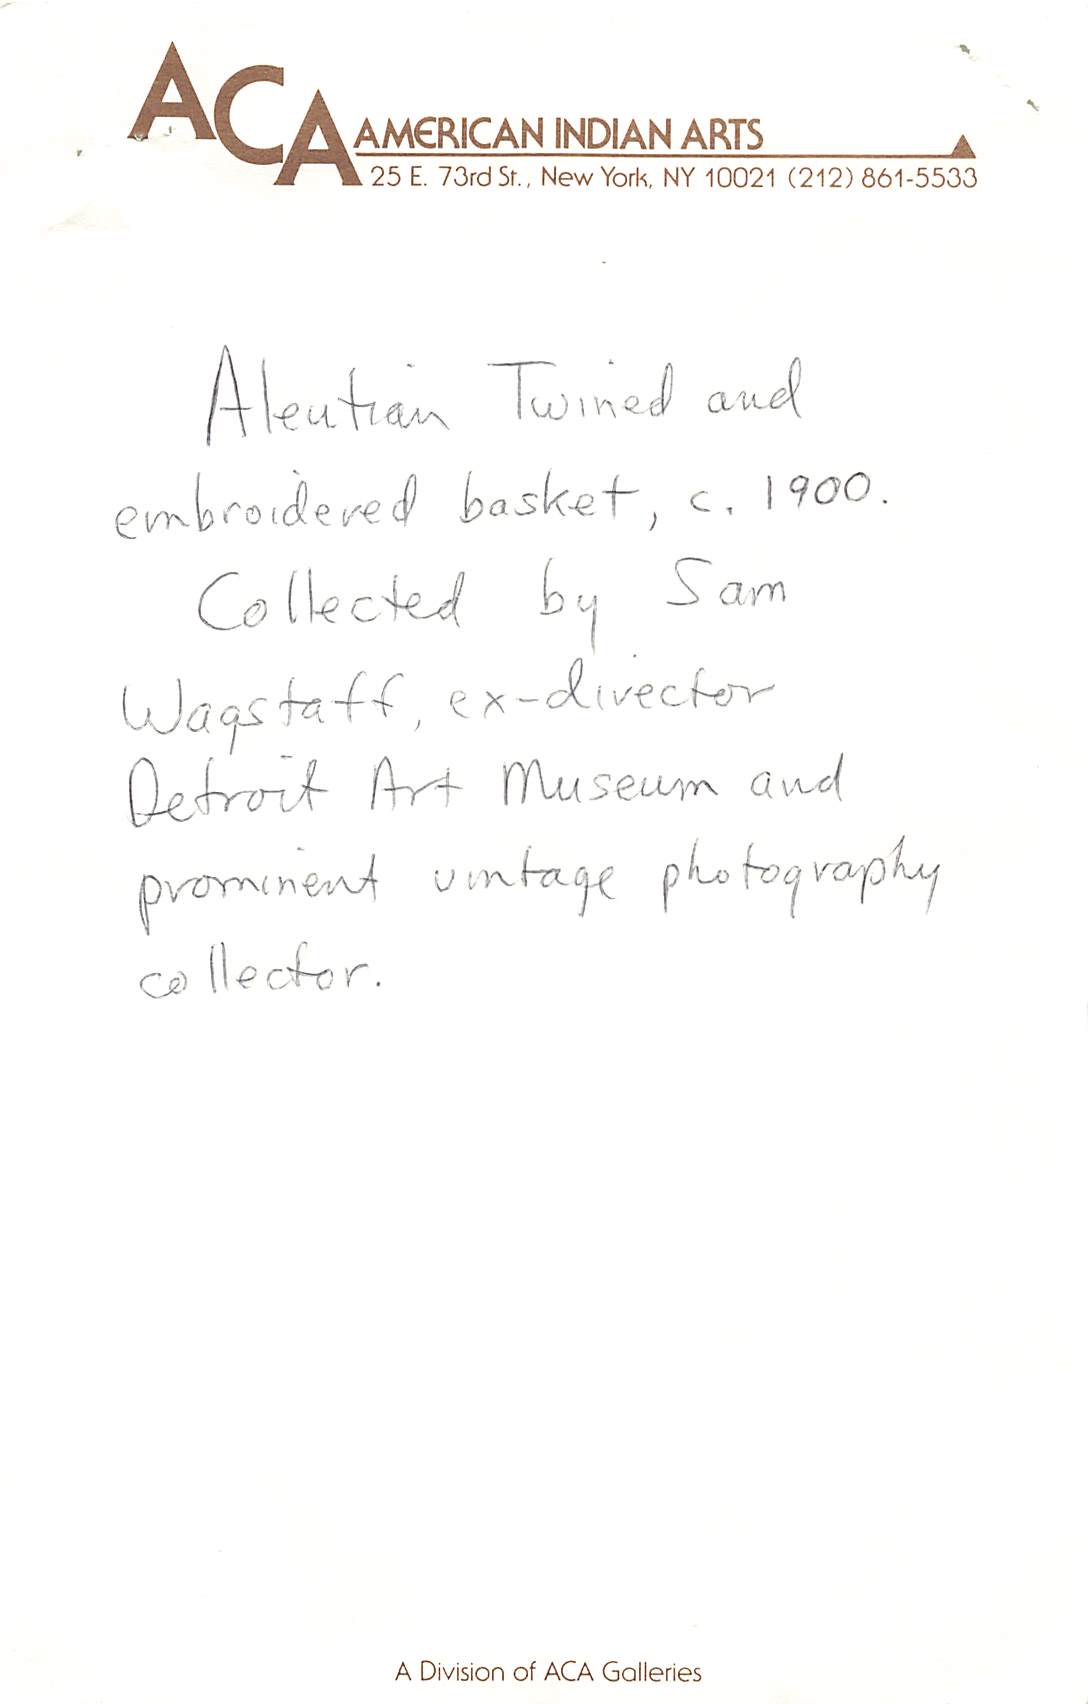 ACA AMERICAN INDIAN ARTS
25 E. 73rd St., New York, NY 10021 (212) 861-5533
Aleutian Twined and
embroidered basket, c. 1900.
Collected by Sam
Wagstaff, ex-director
Detroit Art Museum and
prominent vintage photography
collector.
A Division of ACA Galleries